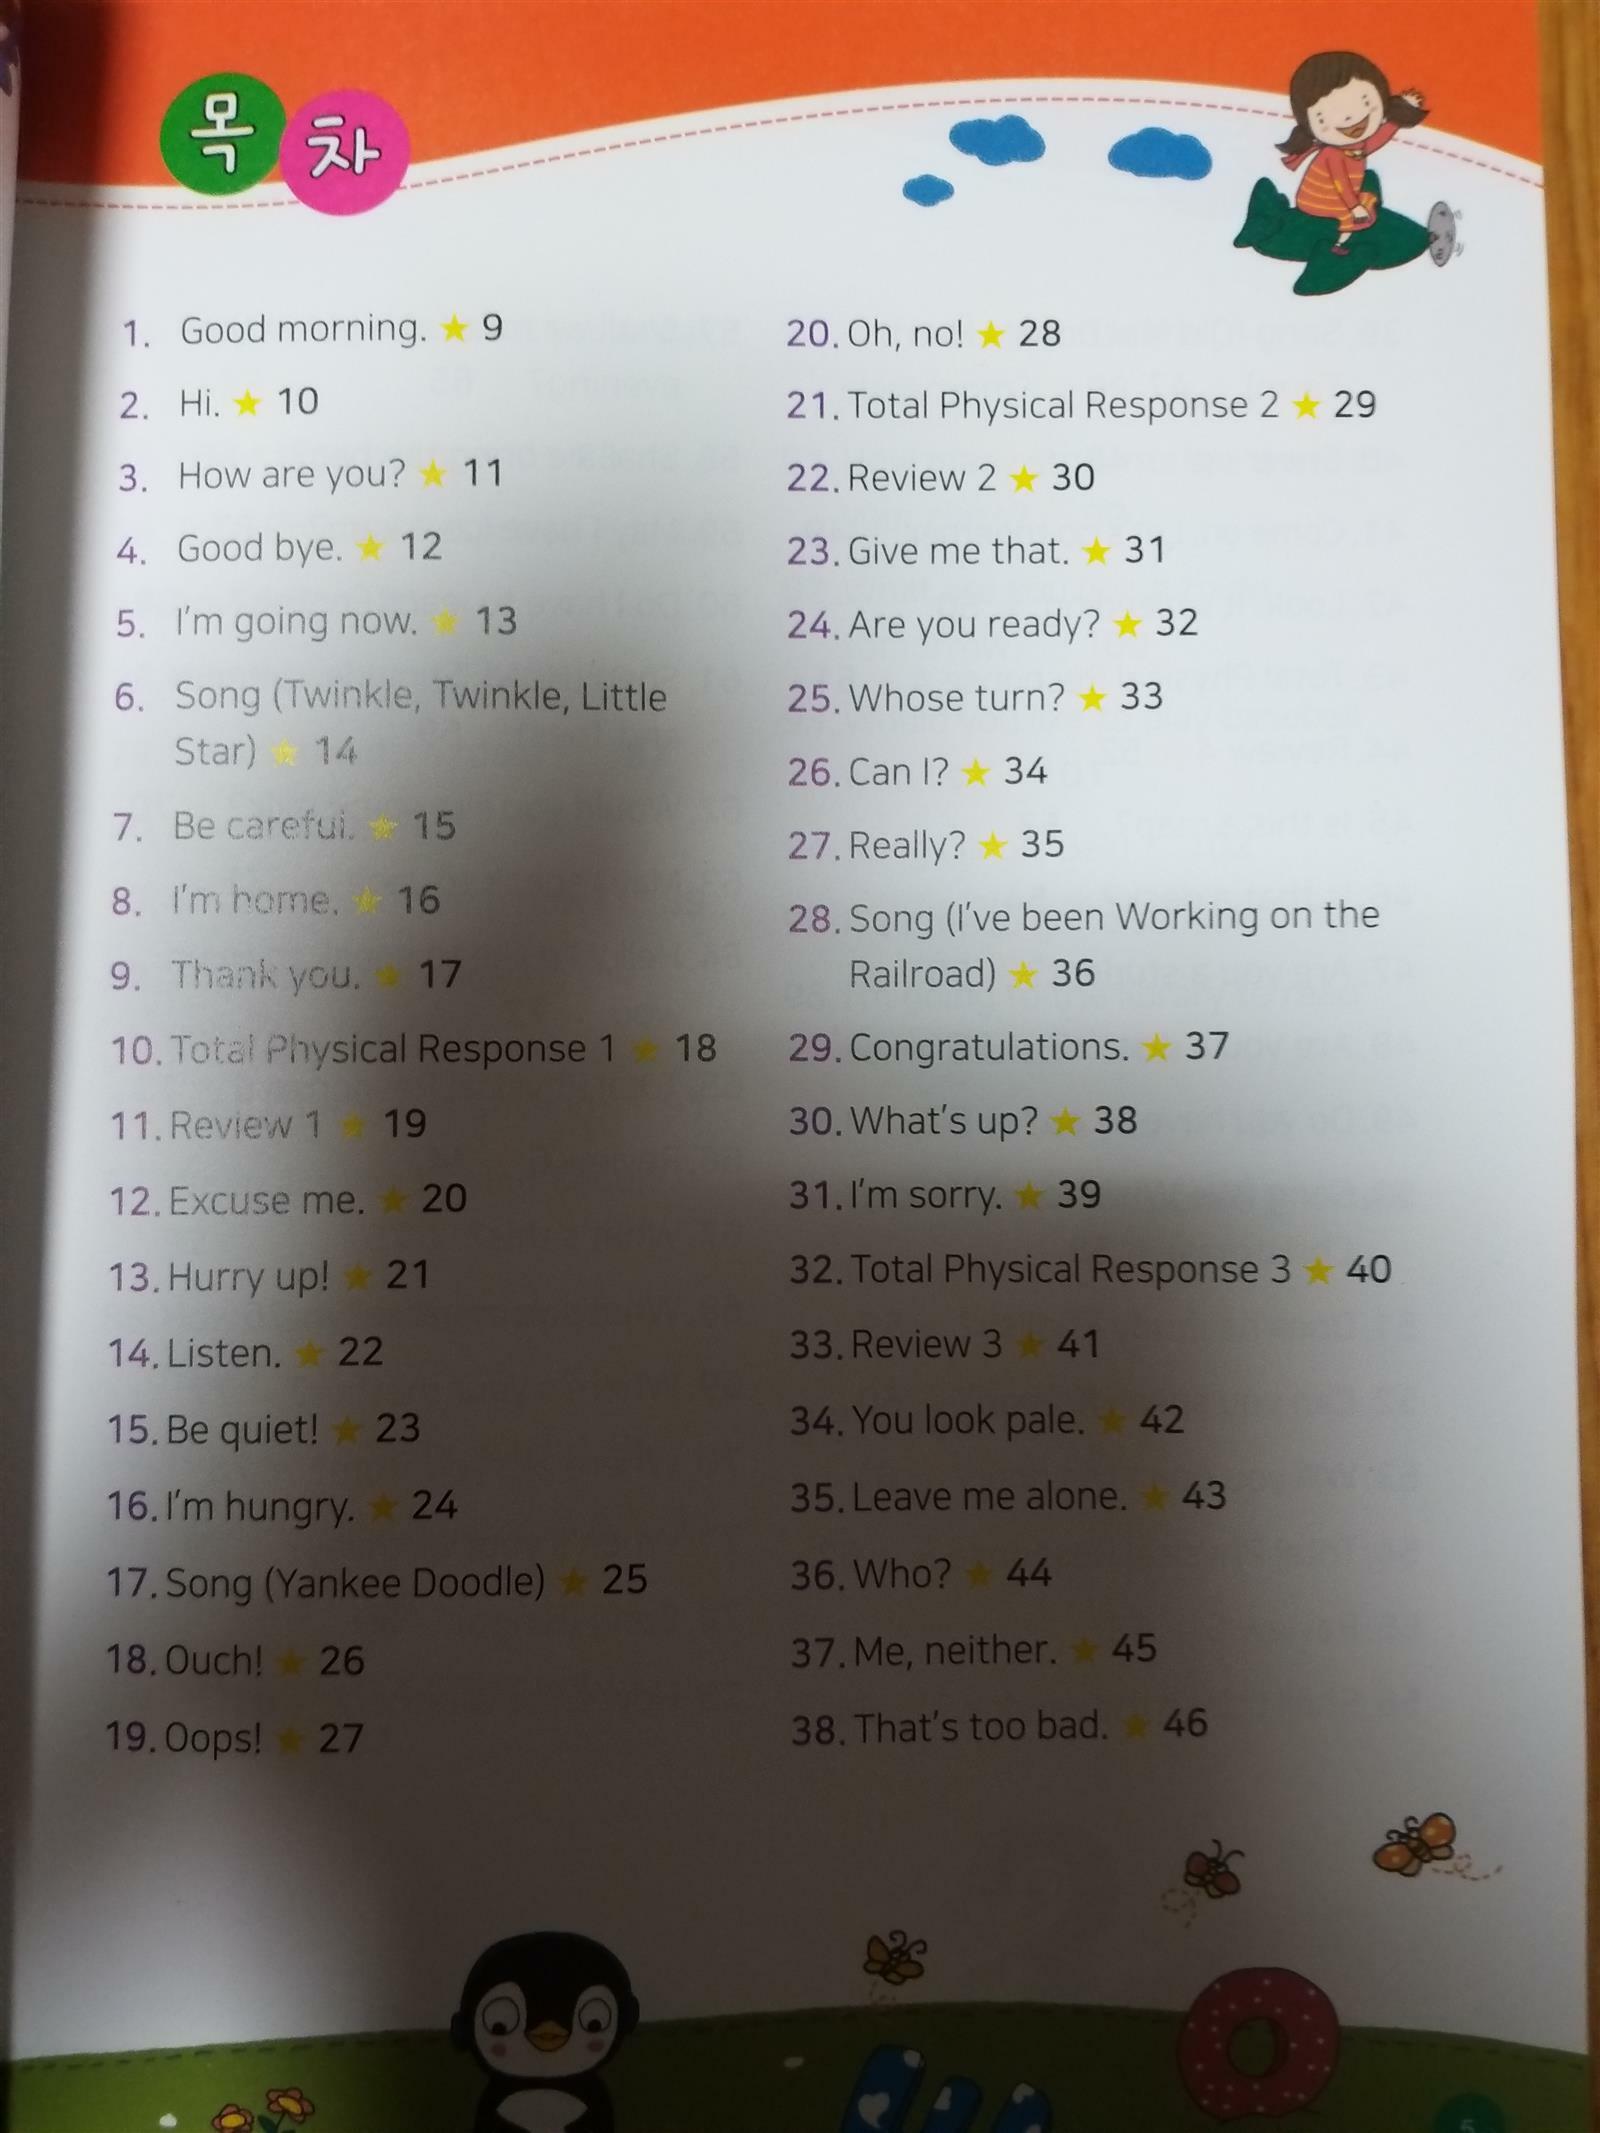 목차
1. Good morning. ★ 9
2. Hi. ★ 10
3. How are you? ★ 11
4. Good bye. ★ 12
5. I'm going now. ★ 13
6. Song (Twinkle, Twinkle, Little
Star) ★ 14
7. Be careful. ★ 15
8. I'm home. ★ 16
9. Thank you. ★ 17
10. Total Physical Response 1 ★ 18
11. Review 1 ★ 19
12. Excuse me. ★ 20
13. Hurry up! ★ 21
14. Listen. ★ 22
15. Be quiet! ★ 23
16. I'm hungry. ★ 24
17. Song (Yankee Doodle) ★ 25
18. Ouch! ★ 26
19. Oops! ★ 27
20. Oh, no! ★ 28
21. Total Physical Response 2 ★ 29
22. Review 2 ★ 30
23. Give me that. ★ 31
24. Are you ready? ★ 32
25. Whose turn? ★ 33
26. Can I? ★ 34
27. Really? ★ 35
28. Song (I've been Working on the
Railroad) ★ 36
29. Congratulations. ★ 37
30. What's up? ★ 38
31. I'm sorry. ★ 39
32. Total Physical Response 3 ★ 40
33. Review 3 ★ 41
34. You look pale. ★ 42
35. Leave me alone. ★ 43
36. Who? ★ 44
37. Me, neither. ★ 45
38. That's too bad. ★ 46
5